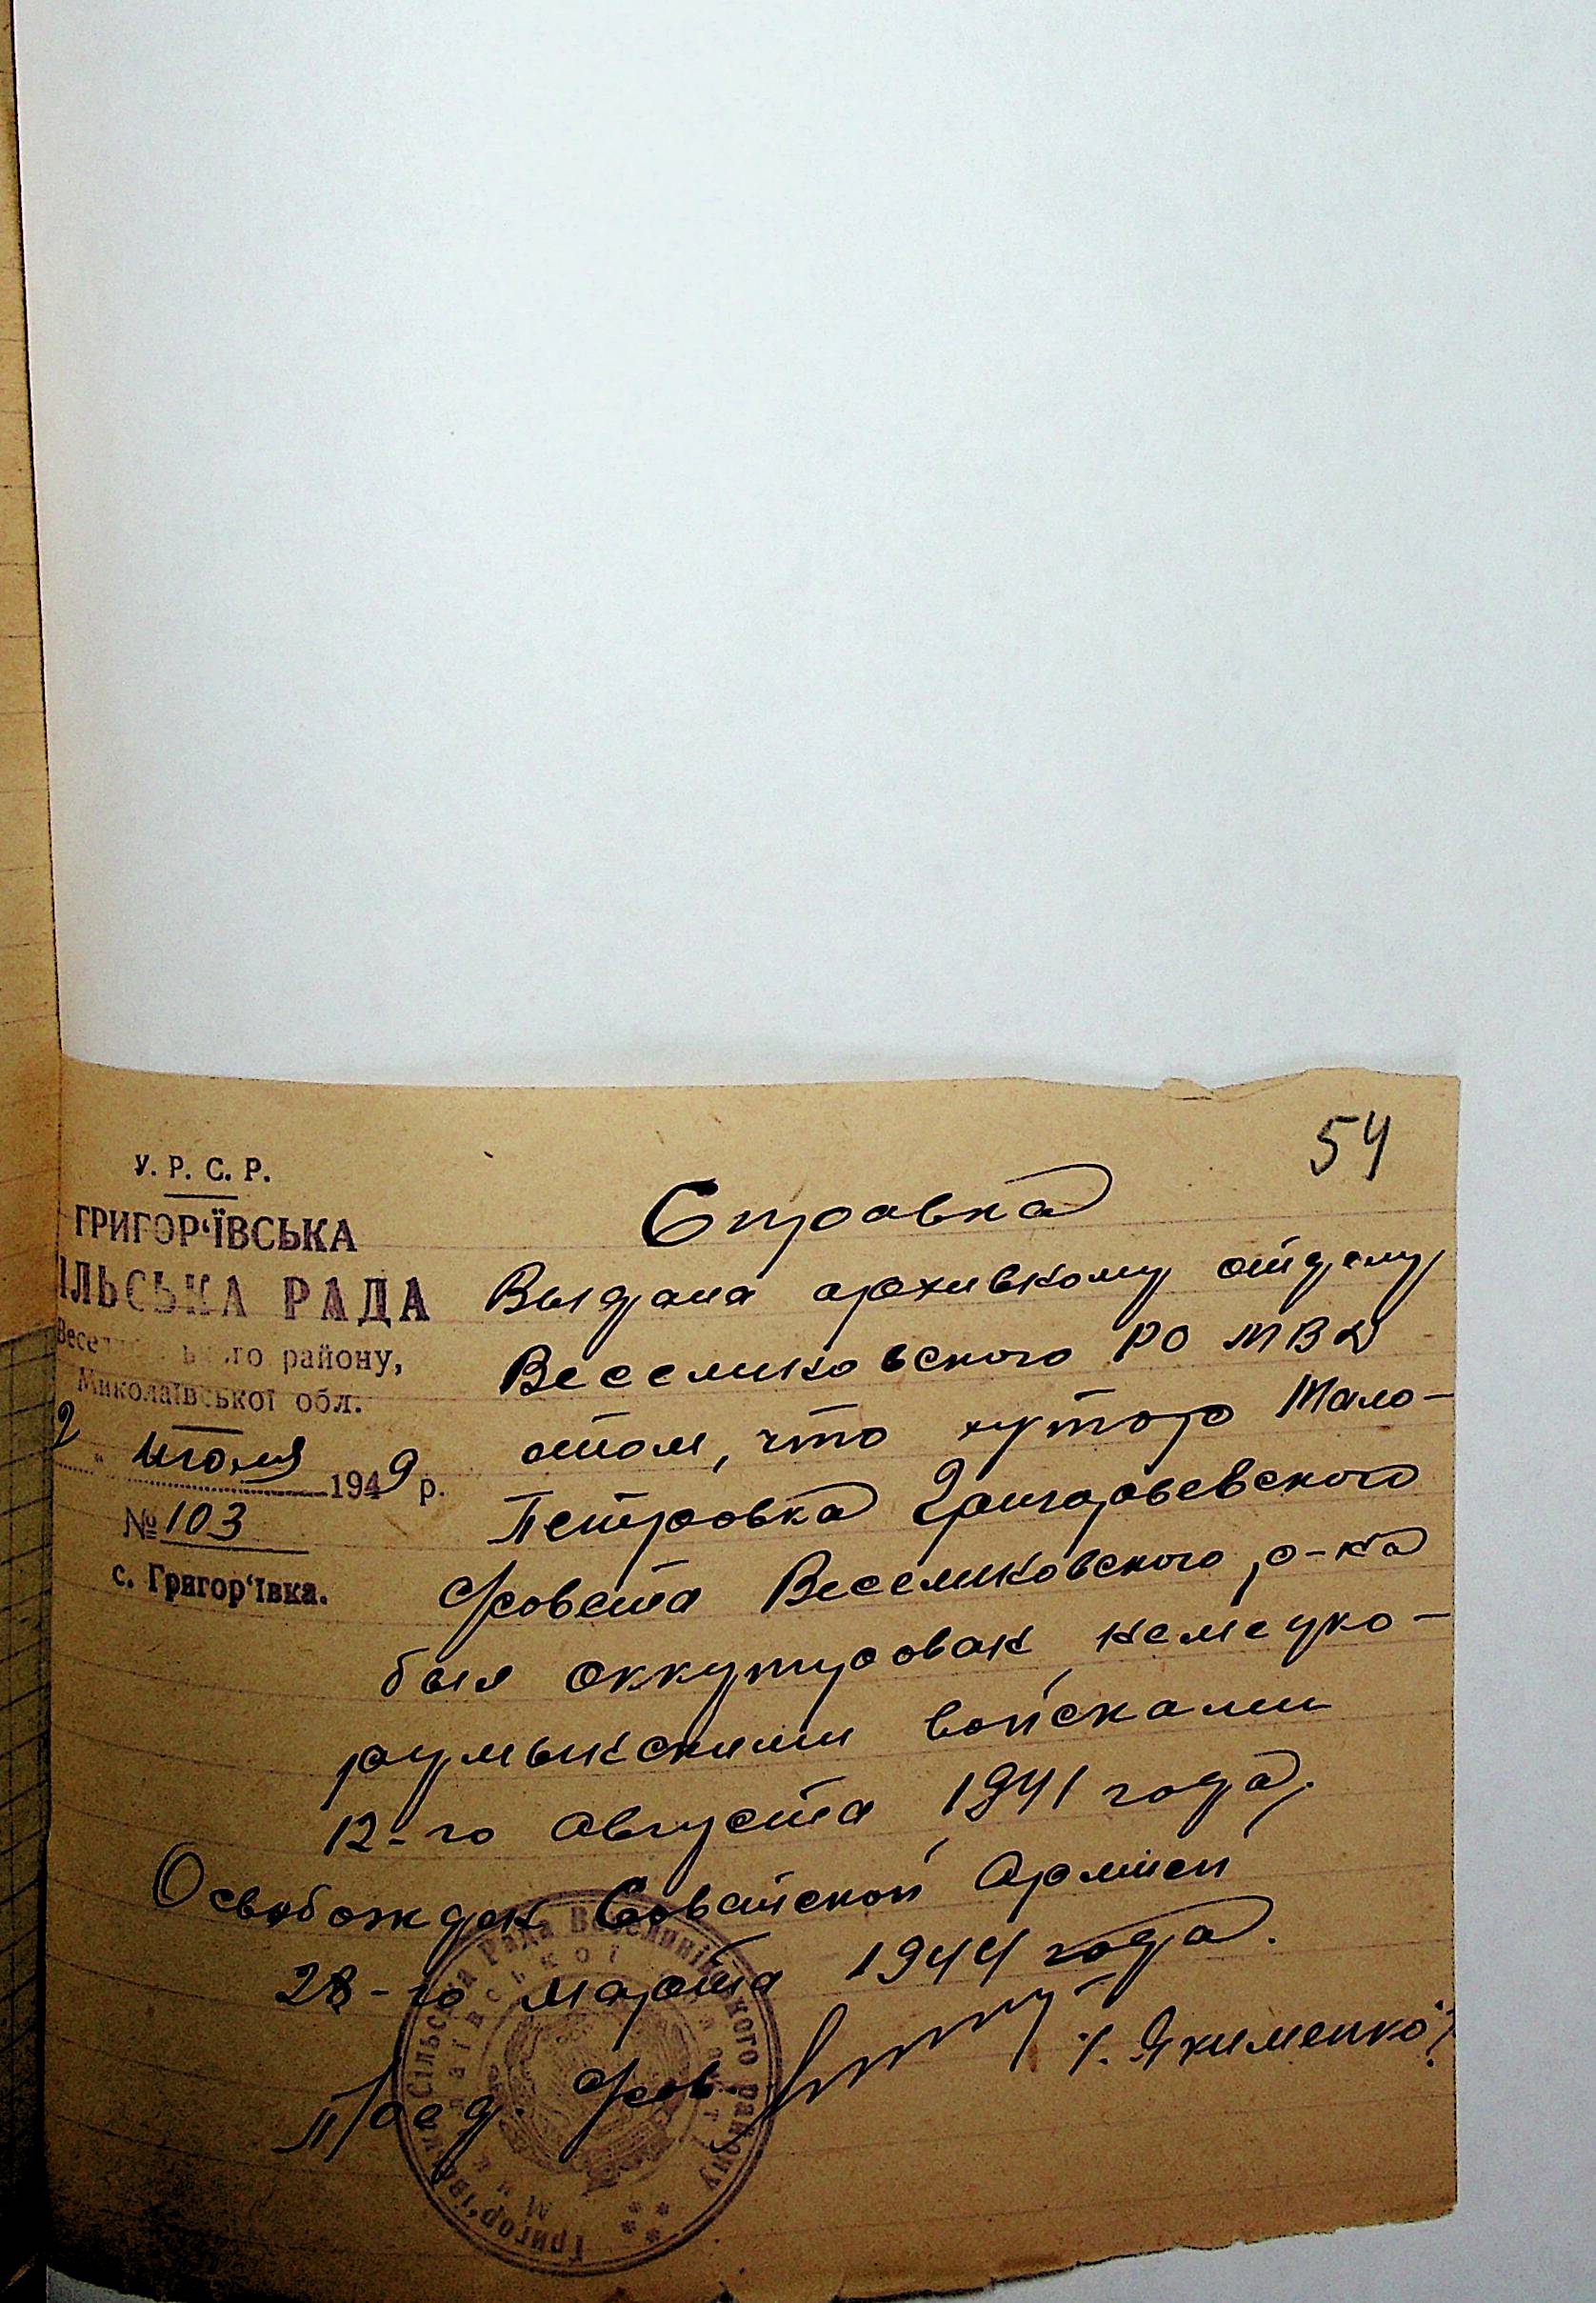 54
У. Р. С. Р.
ГРИГОР'ЇВСЬКА
ІЛЬСЬКА РАДА
района, Миколаївської обл.
2 " Июля 1949 р.
№ 103
с. Григор'ївка.
Справка
Выдана архивкому отделу
Веселиновского РО МВД
отом, что хутор Мало-
Петровка Григорьевского
с/совета Веселиновского р-на
был оккупирован немецко-
румынскими войсками
12-го августа 1941 года,
Освобожден Советской Армией
28-го марта 1944 года.
Пред. с/сов. /. Якименко/
Григор'ївська Сільська Рада Веселинівського району
Миколаївської області